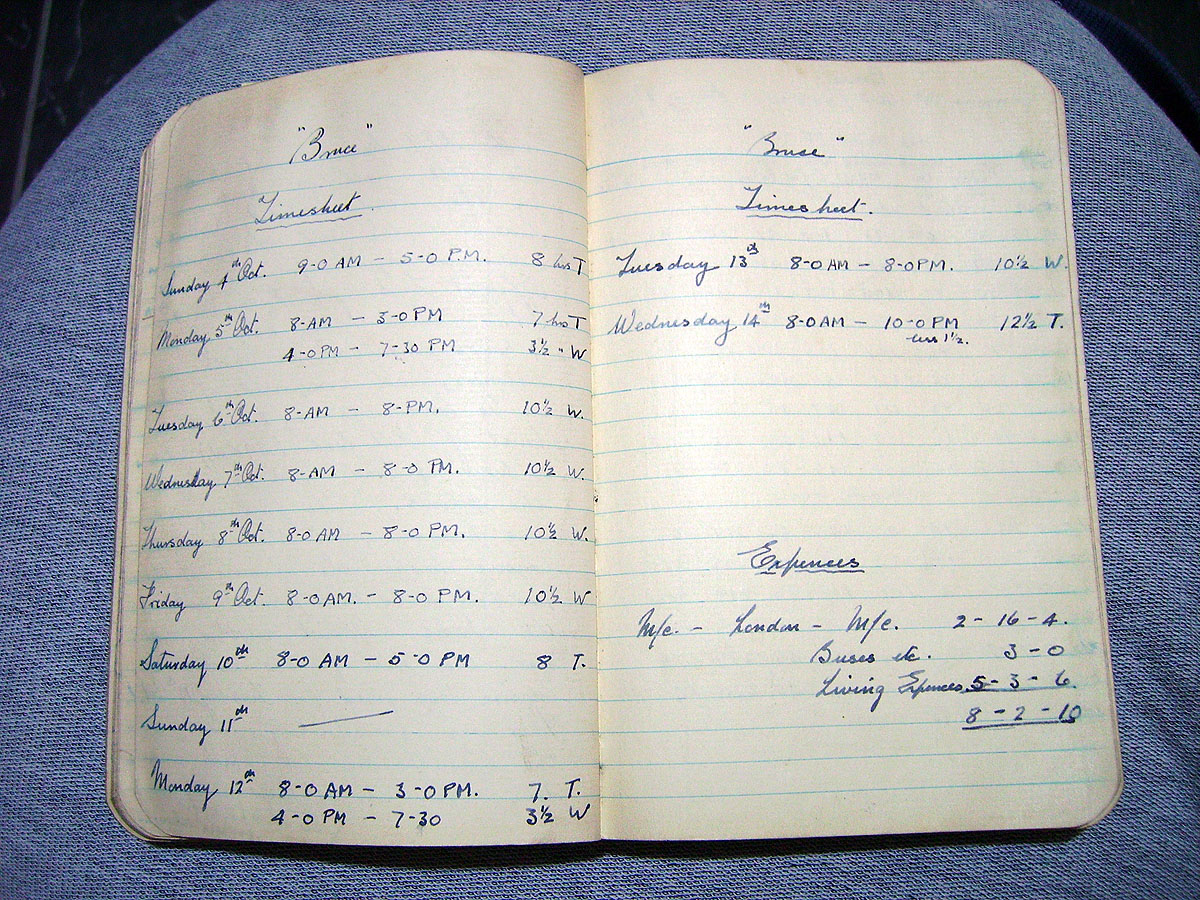 "Bruce"
Timesheet
Sunday 4th Oct. 9-0 AM - 5-0 P.M. 8 hrs T
Monday 5th Oct. 8-AM - 3-0 PM 7 hrs T
4-0 PM - 7-30 PM 3½ " W
Tuesday 6th Oct. 8-AM - 8-PM. 10½ W.
Wednesday 7th Oct. 8-AM - 8-0 PM. 10½ W.
Thursday 8th Oct. 8-0 AM - 8-0 PM. 10½ W.
Friday 9th Oct. 8-0 AM. - 8-0 PM. 10½ W
Saturday 10th 8-0 AM - 5-0 PM 8 T.
Sunday 11th —
Monday 12th 8-0 AM - 3-0 PM. 7. T.
4-0 PM - 7-30 3½ W
"Bruce"
Timesheet.
Tuesday 13th 8-0 AM - 8-0 PM. 10½ W.
Wednesday 14th 8-0 AM - 10-0 PM 12½ T.
less 1½.
Expences
M/c. - London - M/c. 2-16-4.
Buses etc. 3-0
Living Expences. 5-3-6.
8-2-10